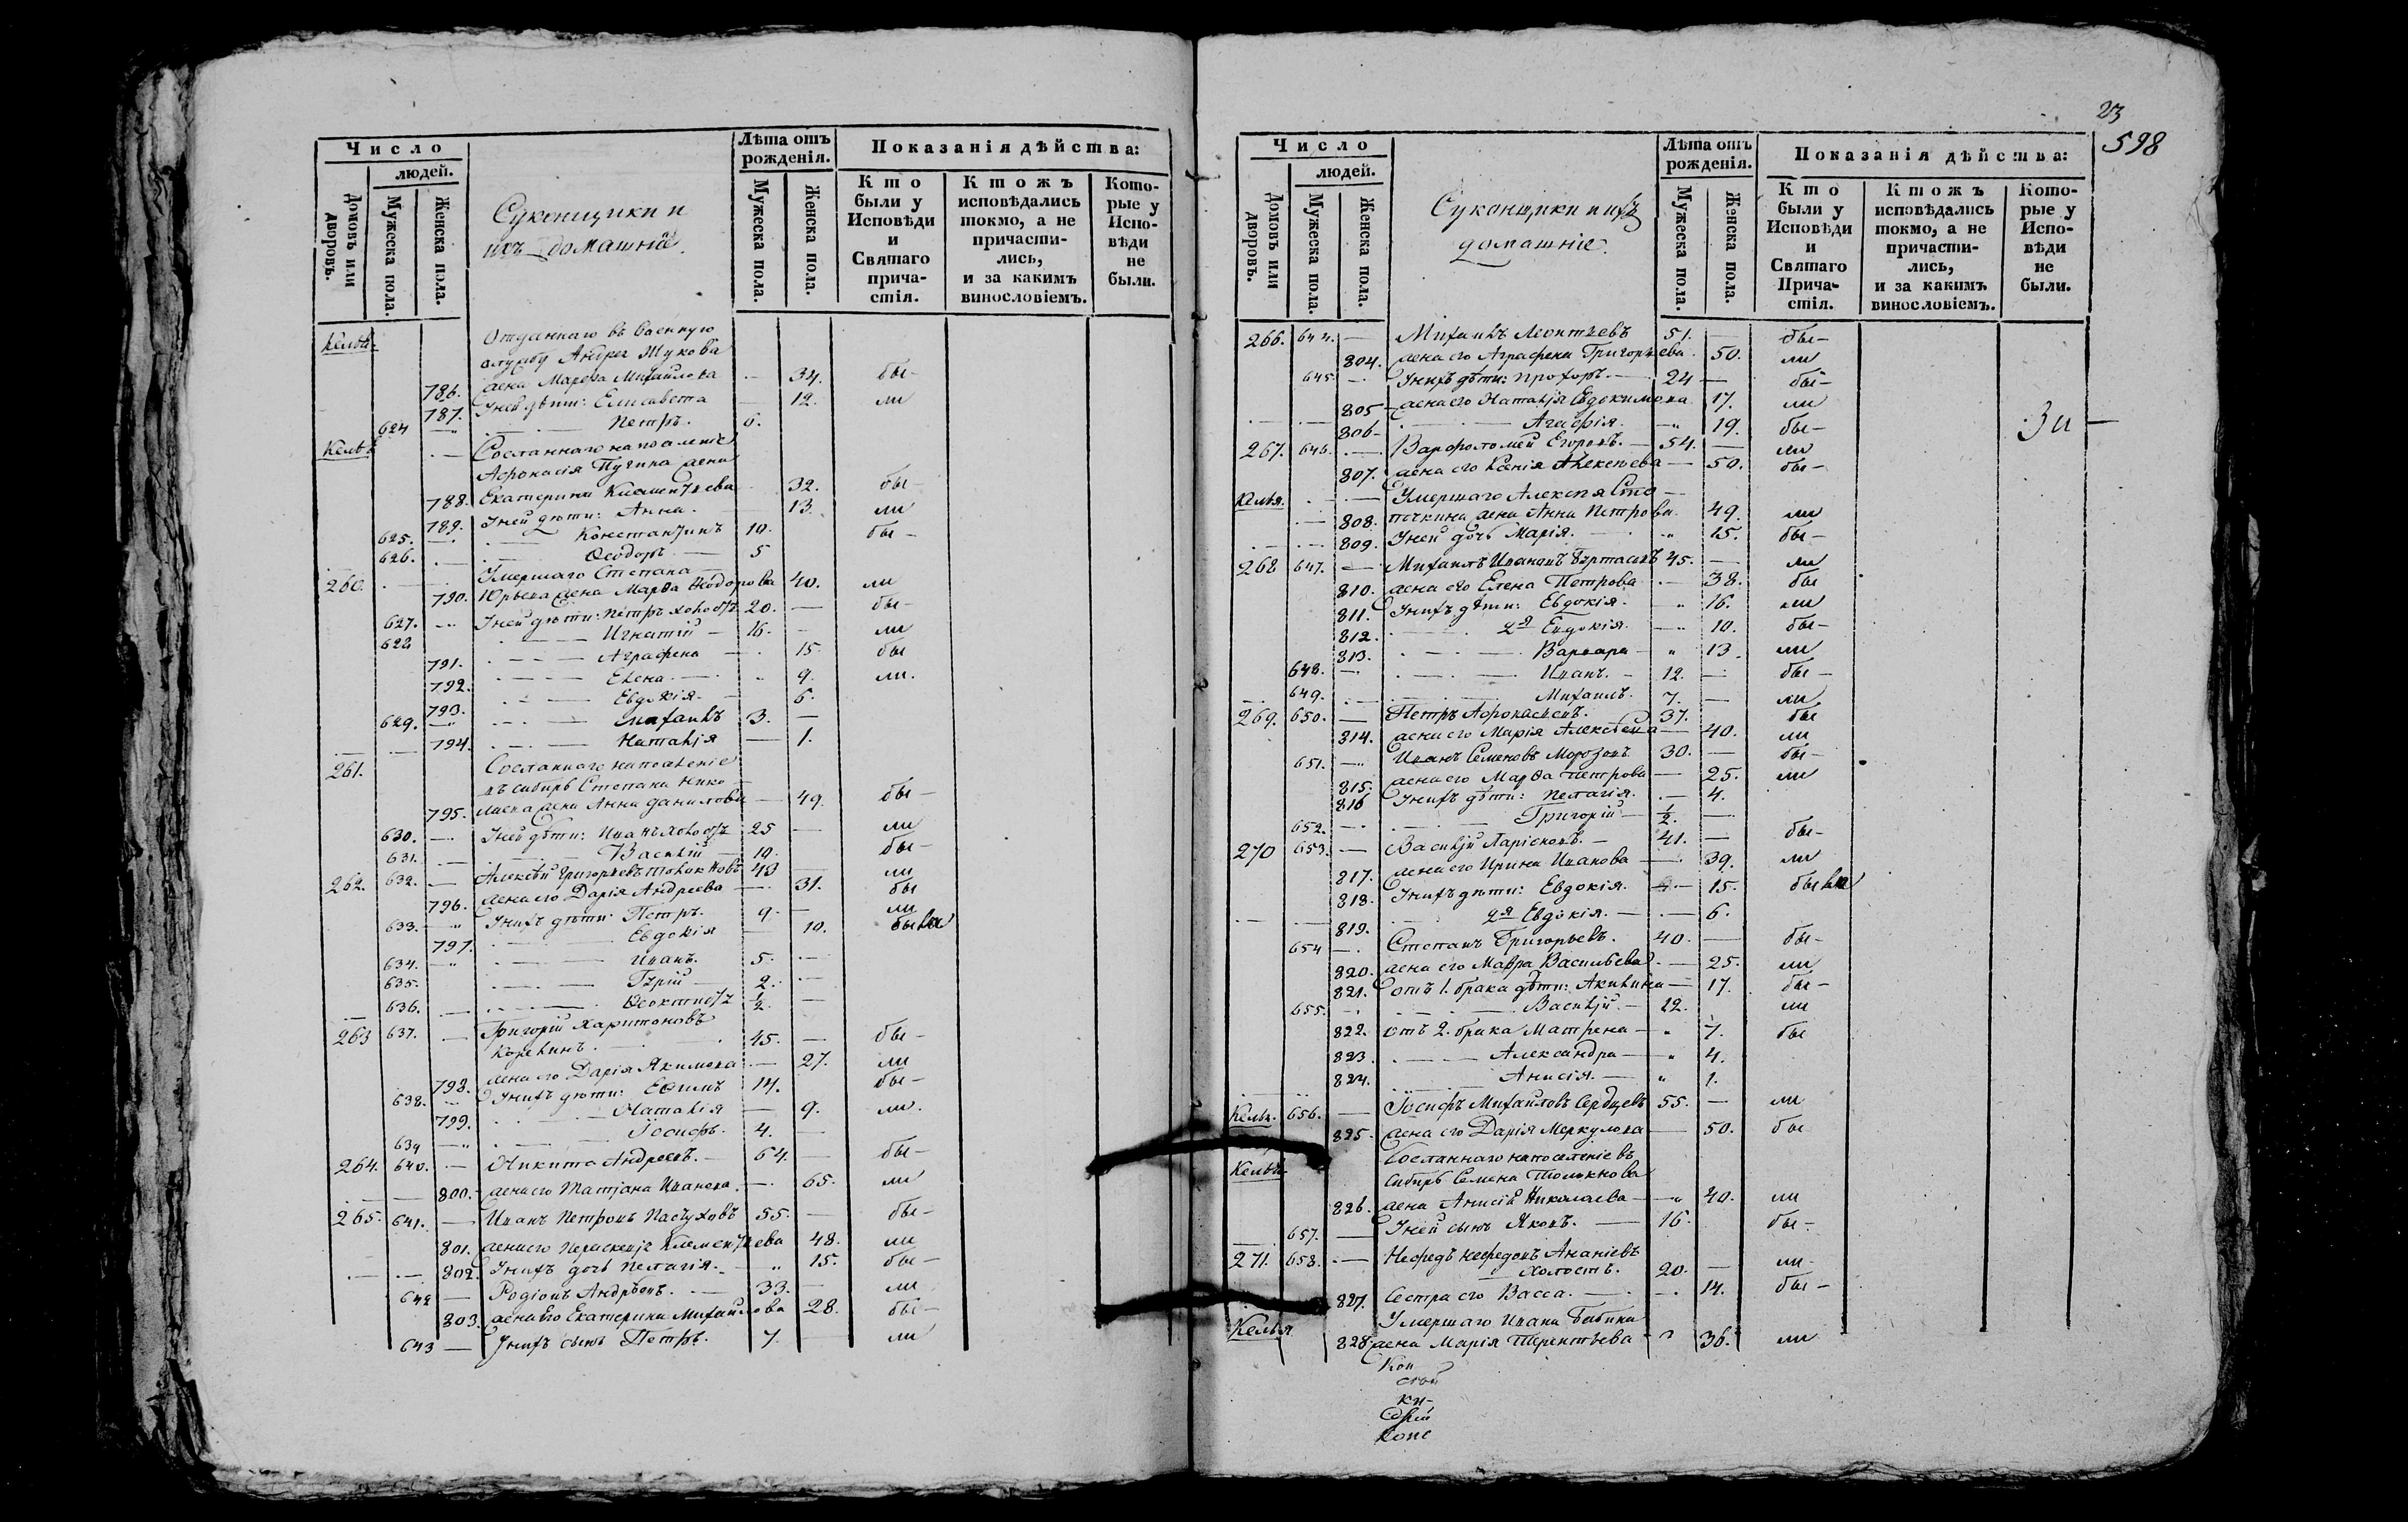 Число
людей.
Домовъ или дворовъ.
Мужеска пола.
Женска пола.
Суконщики и
ихъ домашніе.
Лѣта отъ рожденія.
Мужеска пола.
Женска пола.
Показанія дѣйства:
Кто были у Исповѣди и Святаго причастія.
Ктожъ исповѣдались токмо, а не причастились, и за какимъ винословіемъ.
Которые у Исповѣди не были.
Келья. Отданнаго въ военную
службу Андрея Жукова
786. жена Марѳа Михайлова — 34. бы-
787. У ней дѣти: Елисавета — 12. ли
624 — Петръ. 6.
Келья Сосланнаго на поселеніе
Аѳонасія Пугина жена
788. Екатерина Климентьева 32. бы-
789. У ней дѣти: Анна. 13. ли
625. — Константинъ 10. бы-
626. — Ѳеодоръ. 5
260. Умершаго Степана
790. Юрьева жена Марѳа Ѳедорова 40. ли
627. У ней дѣти: Петръ холостъ 20. — бы-
628 Игнатій 16. — ли
791. Аграфена — 15 бы
792. Елена. 9. ли.
793. Евдокія. 6.
629. Михаилъ 3. —
794. Наталія — 1.
261. Сосланнаго на поселеніе
въ сибирь Степана Нико
795. лаева жена Анна Данилова — 49. бы-
630. У ней дѣти: Иванъ холостъ 25 — ли
631. Василій 19. бы-
262. 632. — Алексѣй Григорьевъ Толокновъ 43 — ли
796. жена его Дарія Андреева — 31. бы
633. У нихъ дѣти: Петръ. 9. — ли
797. Евдокія — 10. была
634. Иванъ. 5. —
635. Гурій 2. —
636. Ѳеоктистъ ½ —
263 637. — Григорій Харитоновъ
Корелинъ. 45. — бы-
798. жена его Дарія Якимова — 27. ли
638. У нихъ дѣти: Еѳимъ 14. бы-
799. Наталія — 9. ли.
639 Іосифъ. 4. —
264. 640. — Никита Андреевъ. 64. — бы-
800. жена его Татіана Иванова. — 65. ли
265. 641. — Иванъ Петровъ Пастуховъ 55. — бы-
801. жена его Параскевія Климентьева 48. ли
802. У нихъ дочь Пелагія. 15. бы-
642 — Родіонъ Андрѣевъ. 33. — ли
803. жена его Екатерина Михайлова 28. бы-
643 — У нихъ сынъ Петръ. 7. — ли
23
598
Число
людей.
Домовъ или дворовъ.
Мужеска пола.
Женска пола.
Суконщики и ихъ
домашніе.
Лѣта отъ рожденія.
Мужеска пола.
Женска пола.
Показанія дѣйства:
Кто были у Исповѣди и Святаго Причастія.
Ктожъ исповѣдались токмо, а не причастились, и за какимъ винословіемъ.
Которые у Исповѣди не были.
266. 644. — Михаилъ Леонтьевъ 51. — бы-
804. жена его Аграфена Григорьева. 50. ли
645. — У нихъ дѣти: Прохоръ. 24 — бы-
805 жена его Наталія Евдокимова 17. ли
806 Агафія. 19. бы-
267. 646. — Варфоломей Егоровъ. 54. — ли
807. жена его Ксенія Алексѣева — 50. бы-
Келья. Умершаго Алексея Сто
808. почкина жена Анна Петрова 49. ли
809. У ней дочь Марія. 15. бы-
268 647. — Михаилъ Ивановъ Буртасовъ 45. — ли
810. жена его Елена Петрова — 38. бы
811. У нихъ дѣти: Евдокія. 16. ли
812. 2я Евдокія. 10. бы-
813. Варвара 13. ли
648. — Иванъ. 12. — бы-
649. — Михаилъ. 7. — ли
269. 650. — Петръ Аѳонасьевъ. 37. бы
814. жена его Марія Алексѣева — 40. ли
651. — Иванъ Семеновъ Морозовъ 30. — бы-
815. жена его Марѳа Петрова — 25. ли
816 У нихъ дѣти: Пелагія. — 4.
652. — Григорій ½ —
270 653. — Василій Ларіоновъ. 41. — бы-
817. жена его Ирина Иванова — 39. ли
818. У нихъ дѣти: Евдокія. — 15. была
819. 2я Евдокія. — 6.
654 — Степанъ Григорьевъ. 40. — бы-
820. жена его Мавра Васильева — 25. ли
821. отъ 1. брака дѣти: Акилина — 17. бы-
655. Василій. 12. ли
822. отъ 2. брака Матрена — 7. бы
823. Александра — 4.
824. Анисія. 1.
Келья. 656. — Іосифъ Михаиловъ Сердцевъ 55. — ли
825. жена его Дарія Меркулова — 50. бы
Келья Сосланнаго на поселеніе въ
Сибирь Семена Толокнова
826. жена Анисія Николаева 40. ли
657. — У ней сынъ Яковъ. 16. бы-
271. 658. — Нефедъ Нефедовъ Ананіевъ
холостъ. 20. — ли
827. Сестра его Васса. 14. бы-
Келья Умершаго Ивана Бабина
828 жена Марія Терентьева 36. ли